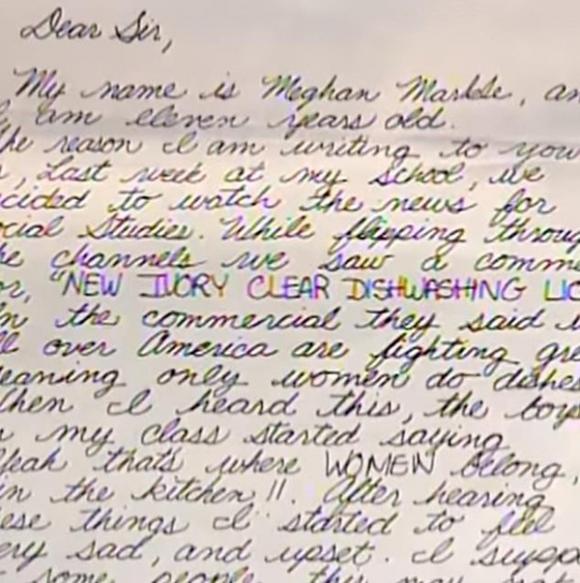 Dear Sir,
My name is Meghan Markle, an
I am eleven years old.
he reason I am writing to you
s, Last week at my school, we
ecided to watch the news for
ocial Studies. While flipping throug
he channels we saw a comme
or, "NEW IVORY CLEAR DISHWASHING LIC
In the commercial they said w
ll over America are fighting gre
eaning only women do dishes
When I heard this, the boys
n my class started saying
Yeah thats where WOMEN belong,
in the kitchen!!. After hearing
ese things I started to feel
ery sad, and upset. I supp
some people this may